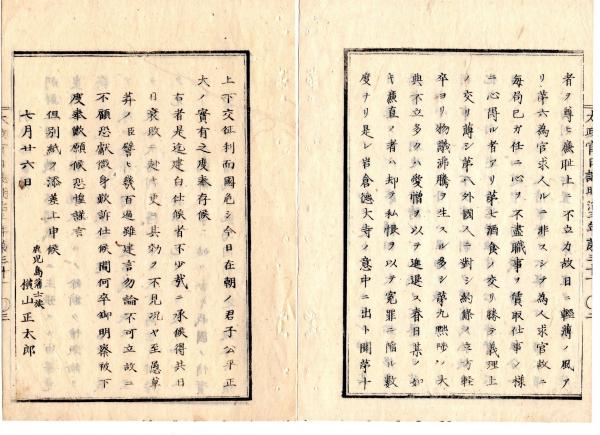 者ヲ尊ヒ廉耻上ニ不立カ故日ニ輕薄ノ風ア
リ第六為官求人ルニ非スシテ為人求官故ニ
毎局己カ任ニ心ヲ不盡職事ヲ賃取仕事ノ様
ニ心得ル者アリ第七酒食ノ交リ勝テ義理上
ノ交リ薄シ第八外國人ニ對シ約條ノ立方輕
卒ヨリ物議沸騰ヲ生スル多シ第九黜陟ノ大
典不立多クハ愛憎ヲ以テ進退ス春日某ノ如
キ廉直ノ者ハ却テ私恨ヲ以テ冤罪ニ陥ル數
度ナリ是レ岩倉徳大寺ノ意中ニ出ト聞第十
上下交征利而國危シ今日在朝ノ君子公平正
大ノ實有之度奉存候
右者是迄建白仕候者不少哉ニ承候得共日
日衰敗ニ赴キ更ニ其効ヲ不見況ヤ至愚草
莽ノ臣譬ヒ幾百過雖建言勿論不可立故ニ
不顧恐獻微身歎訴仕候間何卒御明察被下
度奉歎願候恐惶謹言
但別紙ヲ添差上申候
鹿児島藩士族
七月廿六日 横山正太郎